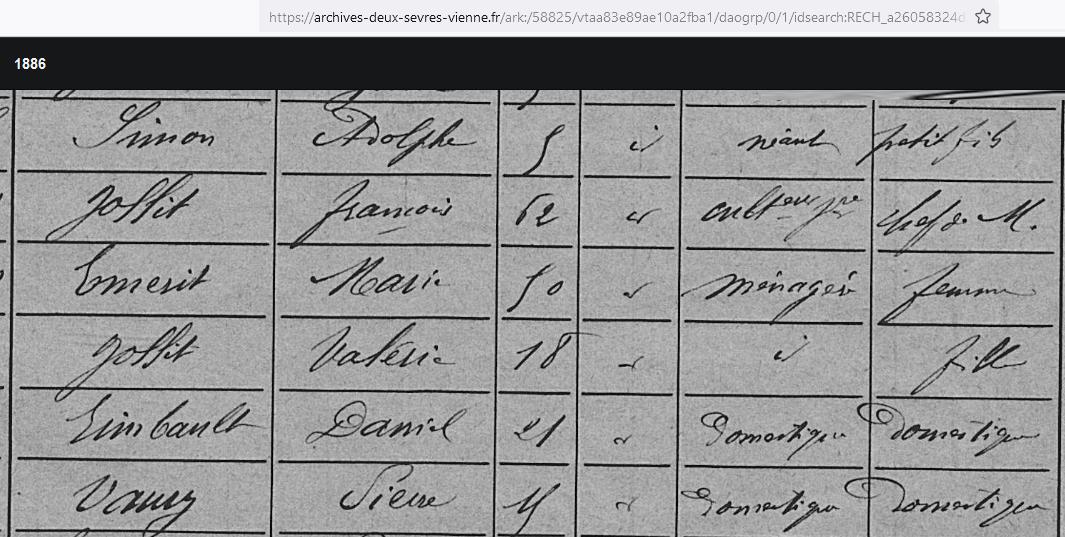 https://archives-deux-sevres-vienne.fr/ark:/58825/vtaa83e89ae10a2fba1/daogrp/0/1/idsearch:RECH_a26058324d
1886
Simon Adolphe 5 id néant petit fils
Joffit françois 62 id culteur ppre chef de M.
Emerit Marie 50 id ménagère femme
Joffit Valérie 18 id id fille
Eimbault Daniel 21 id Domestique Domestique
Pierre 15 id Domestique Domestique